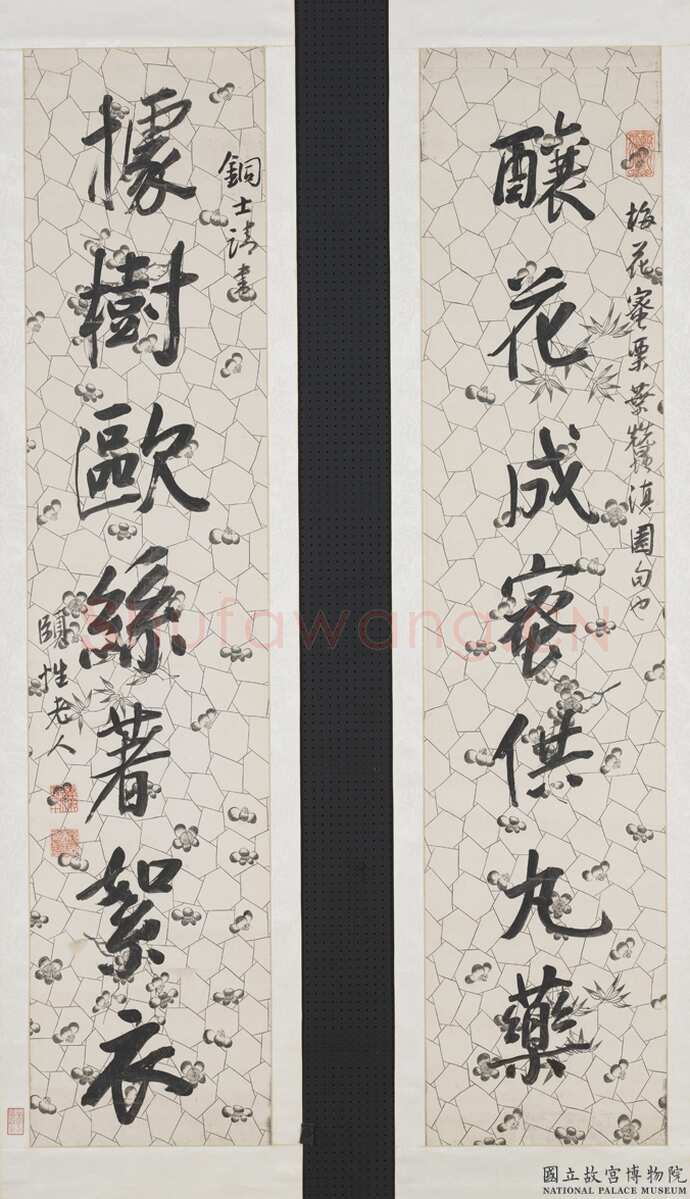 梅花蜜栗葉蠶滇園句也
釀花成蜜供丸藥
銅士請書
據樹歐絲著絮衣
頤性老人
Shufawang.CN
國立故宮博物院
NATIONAL PALACE MUSEUM